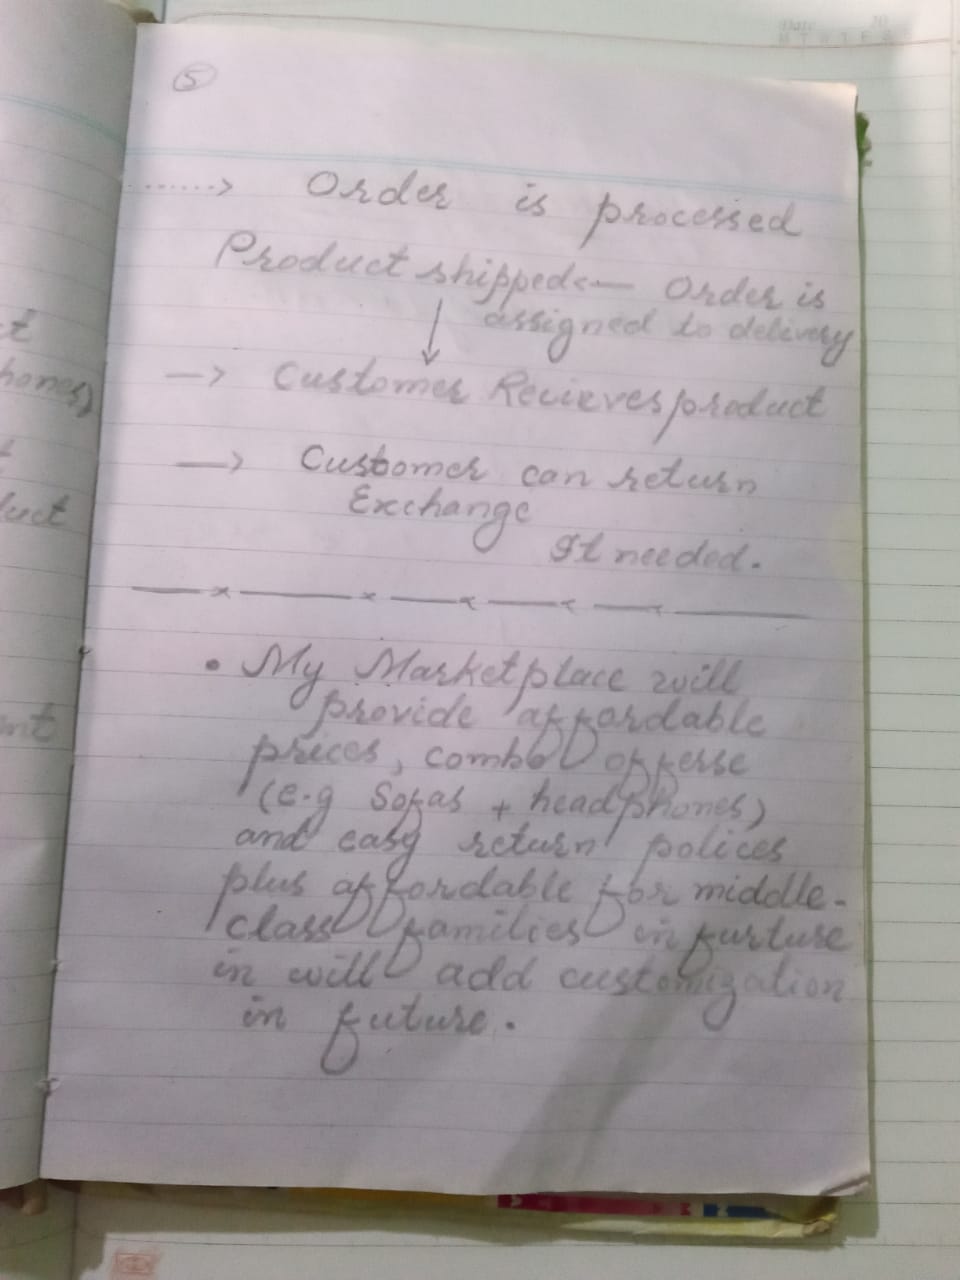 Date 20
M T W T F S
5
......> Order is processed
Product shipped <— Order is
assigned to delivery
↓
—> Customer Recieves product
—> Customer can return
Exchange
It needed.
• My Marketplace will
provide affordable
prices, combo offerse
(e.g Sofas + headphones)
and easy return polices
plus affordable for middle-
class families in furture
in will add customization
in future.
t
hones)
t
duct
nt